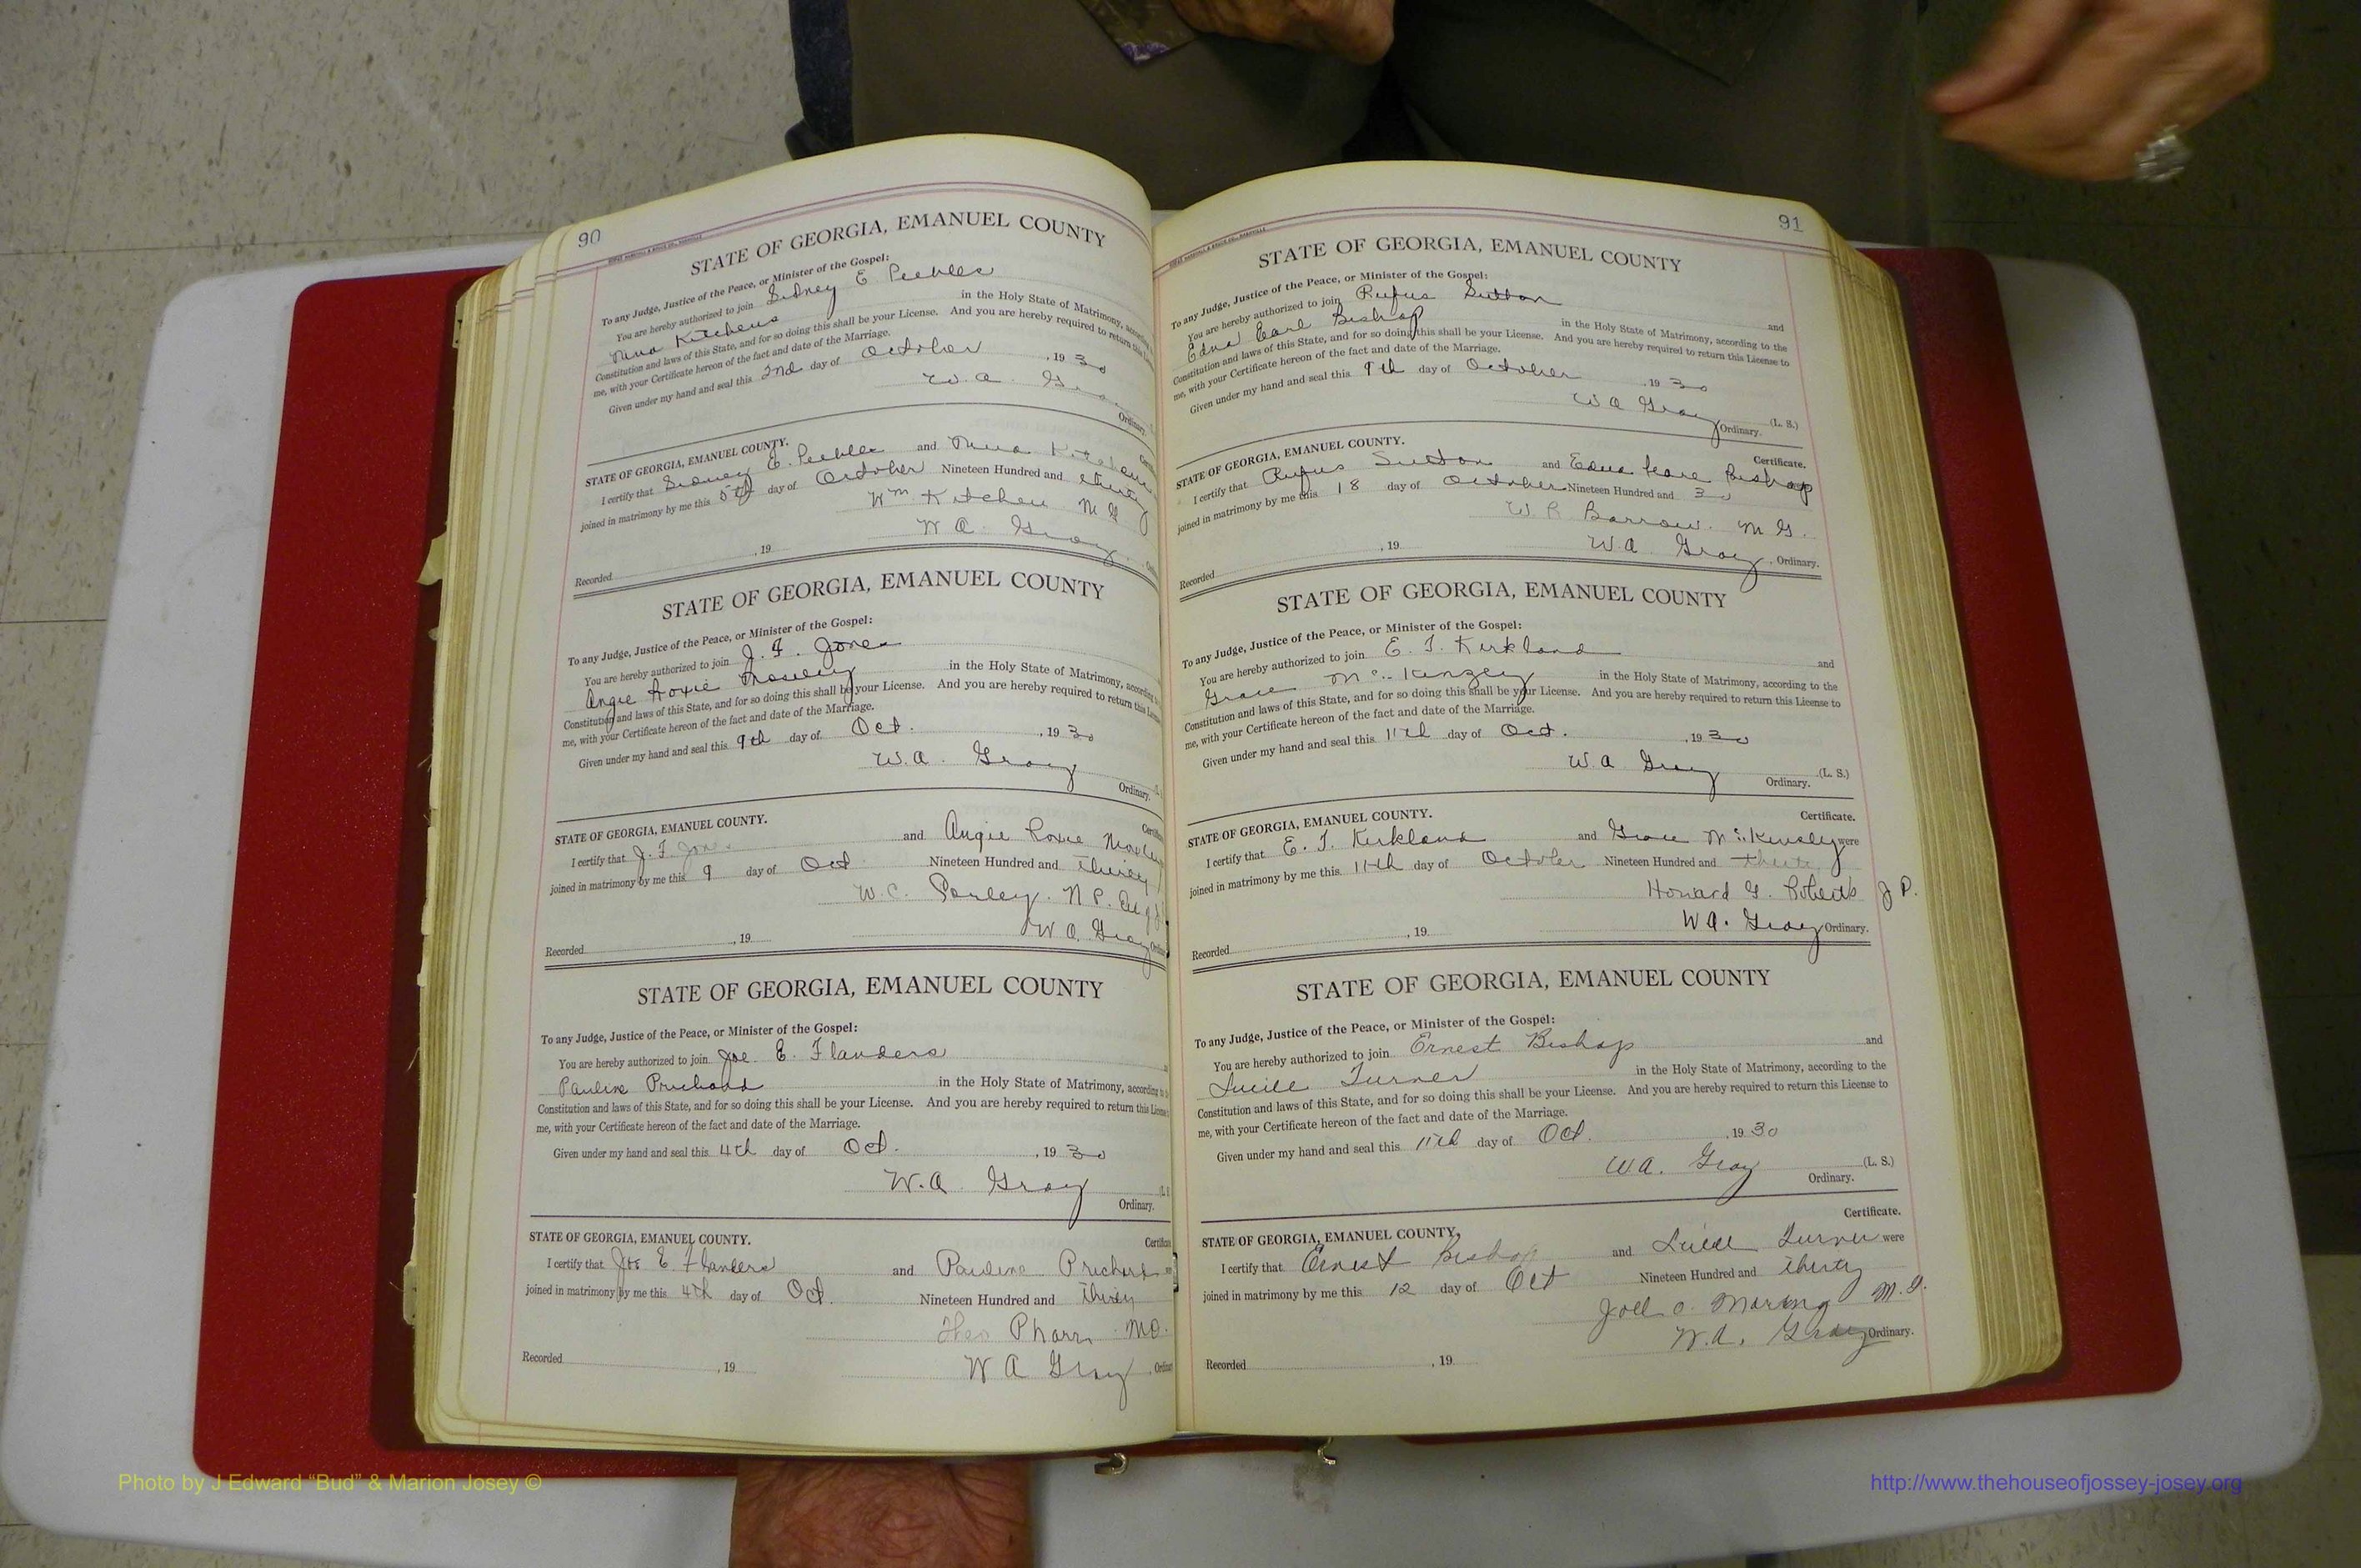 90
STATE OF GEORGIA, EMANUEL COUNTY
To any Judge, Justice of the Peace, or Minister of the Gospel:
You are hereby authorized to join Sidney E Peebles
Kitchens in the Holy State of Matrimony,
Constitution and laws of this State, and for so doing this shall be your License. And you are hereby required to return this
me, with your Certificate hereon of the fact and date of the Marriage.
Given under my hand and seal this 2nd day of October , 1930
W. A.
Ordinary.
STATE OF GEORGIA, EMANUEL COUNTY.
I certify that Sidney E. Peebles and
joined in matrimony by me this 5th day of October Nineteen Hundred and thirty
Wm Kitchen M G
W A. Gray
Recorded , 19
STATE OF GEORGIA, EMANUEL COUNTY
To any Judge, Justice of the Peace, or Minister of the Gospel:
You are hereby authorized to join J. F. Jones
Angie Roxie in the Holy State of Matrimony,
Constitution and laws of this State, and for so doing this shall be your License. And you are hereby required to return this
me, with your Certificate hereon of the fact and date of the Marriage.
Given under my hand and seal this 9th day of Oct. , 1930
W. A. Gray
Ordinary.
STATE OF GEORGIA, EMANUEL COUNTY.
I certify that J. F. Jones and Angie Roxie
joined in matrimony by me this 9 day of Oct Nineteen Hundred and thirty
W. C. N P.
W A. Gray
Recorded , 19
STATE OF GEORGIA, EMANUEL COUNTY
To any Judge, Justice of the Peace, or Minister of the Gospel:
You are hereby authorized to join Joe E. Flanders
Pauline Prichard in the Holy State of Matrimony, according
Constitution and laws of this State, and for so doing this shall be your License. And you are hereby required to return this
me, with your Certificate hereon of the fact and date of the Marriage.
Given under my hand and seal this 4th day of Oct. , 1930
W. A Gray
Ordinary.
STATE OF GEORGIA, EMANUEL COUNTY.
I certify that Joe E Flanders and Pauline Prichard
joined in matrimony by me this 4th day of Oct. Nineteen Hundred and thirty
Theo Pharr
W A Gray
Recorded , 19
91
STATE OF GEORGIA, EMANUEL COUNTY
To any Judge, Justice of the Peace, or Minister of the Gospel:
You are hereby authorized to join Rufus Sutton and
Edna Earl Bishop in the Holy State of Matrimony, according to the
Constitution and laws of this State, and for so doing this shall be your License. And you are hereby required to return this License to
me, with your Certificate hereon of the fact and date of the Marriage.
Given under my hand and seal this 9th day of October , 1930
W A Gray (L. S.)
Ordinary.
STATE OF GEORGIA, EMANUEL COUNTY. Certificate.
I certify that Rufus Sutton and Edna Bishop
joined in matrimony by me this 18 day of October Nineteen Hundred and 30
Barrow. M G.
W. A Gray , Ordinary.
Recorded , 19
STATE OF GEORGIA, EMANUEL COUNTY
To any Judge, Justice of the Peace, or Minister of the Gospel:
You are hereby authorized to join E. T. Kirkland and
Grace Mc Kinzey in the Holy State of Matrimony, according to the
Constitution and laws of this State, and for so doing this shall be your License. And you are hereby required to return this License to
me, with your Certificate hereon of the fact and date of the Marriage.
Given under my hand and seal this 11th day of Oct. , 1930
W. A Gray (L. S.)
Ordinary.
STATE OF GEORGIA, EMANUEL COUNTY. Certificate.
I certify that E. T. Kirkland and Grace McKinsley were
joined in matrimony by me this 11th day of October Nineteen Hundred and thirty
Howard G. Roberts J P.
W A. Gray Ordinary.
Recorded , 19
STATE OF GEORGIA, EMANUEL COUNTY
To any Judge, Justice of the Peace, or Minister of the Gospel:
You are hereby authorized to join Ernest Bishop and
Lucile Turner in the Holy State of Matrimony, according to the
Constitution and laws of this State, and for so doing this shall be your License. And you are hereby required to return this License to
me, with your Certificate hereon of the fact and date of the Marriage.
Given under my hand and seal this 11th day of Oct. , 1930
W A. Gray (L. S.)
Ordinary.
STATE OF GEORGIA, EMANUEL COUNTY. Certificate.
I certify that Ernest Bishop and Lucile Turner were
joined in matrimony by me this 12 day of Oct Nineteen Hundred and thirty
Joel O. M. G.
W. A. Gray Ordinary.
Recorded , 19
Photo by J Edward “Bud” & Marion Josey ©
http://www.thehouseofjossey-josey.org